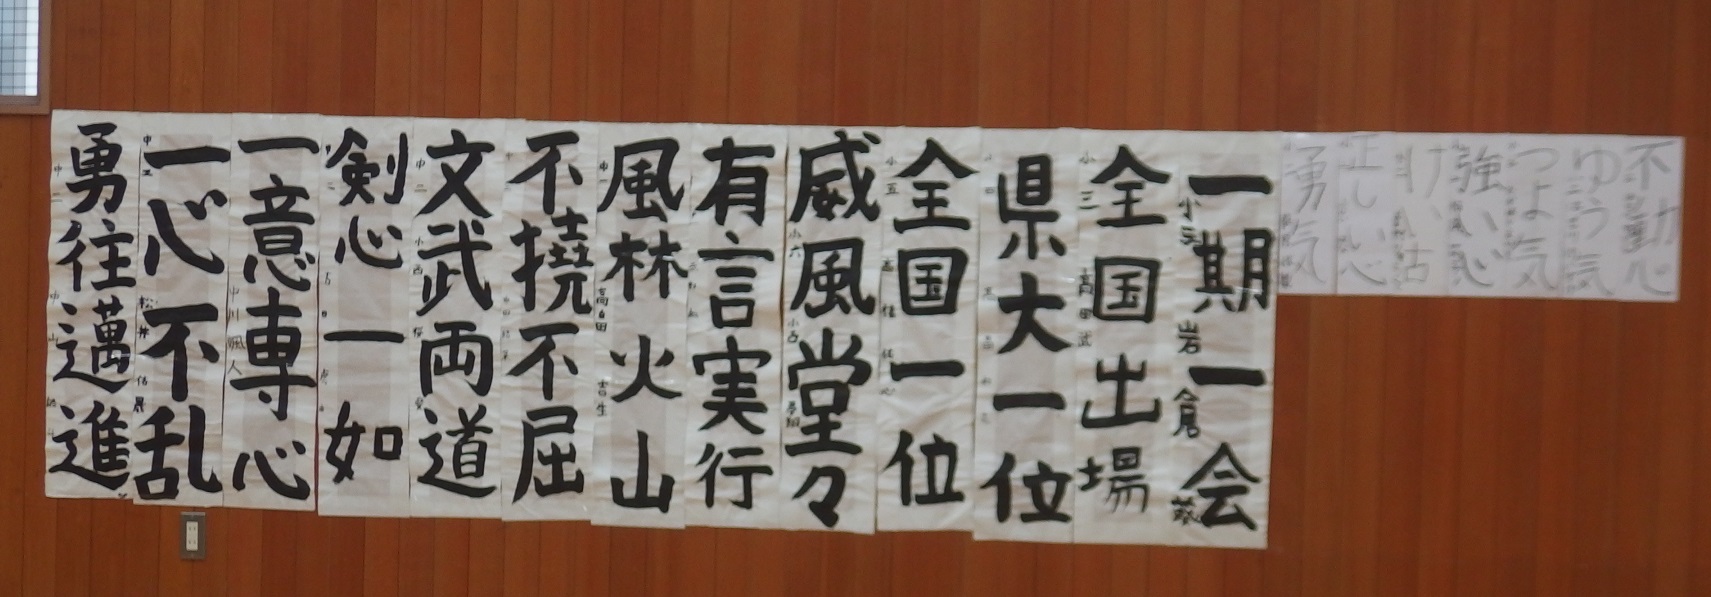 不動心
ゆう気
つよ気
強い心
けい古
正しい心
勇気
一期一会
岩倉
全国出場
小三 高田 武
県大一位
全国一位
小五
威風堂々
小六 小西
有言実行
風林火山
中一 高田 吉生
不撓不屈
文武両道
中二 小西
剣心一如
一意専心
中川 颯人
一心不乱
松井 佑晟
勇往邁進
中二 中山